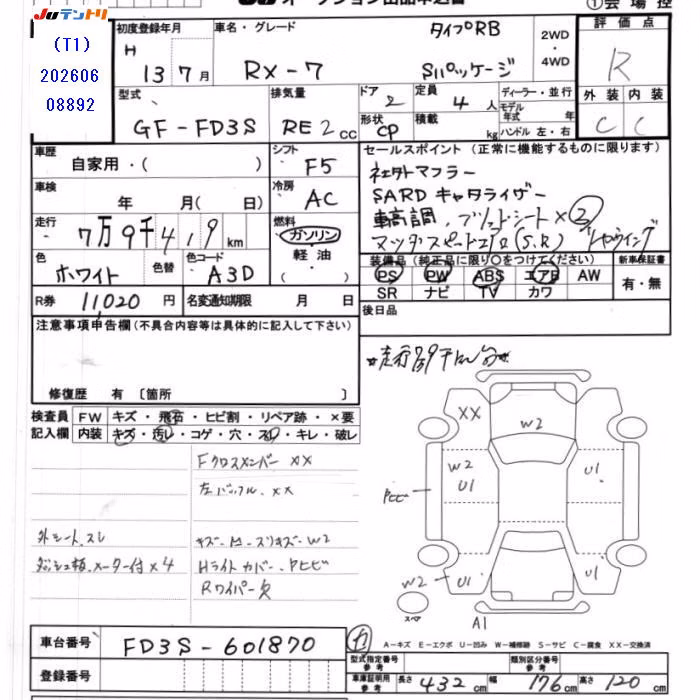 JUテントリ
オークション出品申込書
①会場控
(T1)
202606
08892
初度登録年月
H 13 7月
車名・グレード
RX-7
タイプRB
Sパッケージ
2WD・4WD
評価点
R
外装 内装
C C
型式
GF-FD3S
排気量
RE2 cc
ドア 2
形状 CP
定員 4人
積載 kg
ディーラー・並行
モデル年式 年式
ハンドル 左・右
車歴
自家用・( )
シフト F5
車検
年 月( 日)
冷房 AC
走行
7万9千419km
燃料
ガソリン・軽油・( )
色 ホワイト
色替
色コード A3D
R券 11,020円
名変通知期限 月 日
セールスポイント (正常に機能するものに限ります)
社外マフラー
SARDキャタライザー
車高調、ブリッドシート×②
マツダスピードエアロ(S.R)
装備品(純正品に限り○をつけてください)
新車保証書
PS PW ABS エアB AW
SR ナビ TV カワ
有・無
後日品
注意事項申告欄(不具合内容等は具体的に記入して下さい)
修復歴 有 〔箇所 〕
検査員記入欄
FW キズ・飛石・ヒビ割・リペア跡・×要
内装 キズ・汚レ・コゲ・穴・スレ・キレ・破レ
Fクロスメンバー XX
左バッフル、XX
外シート、スレ
ダッシュ板、メーター付×4
W2
Hライトカバー、Pヒビ
Rワイパー欠
XX
W2
W2
U1
U1
Pヒビ
W2
U1
U1
スペア
A1
車台番号
FD3S-601870
登録番号
A-キズ E-エクボ U-凹み W-補修跡 S-サビ C-腐食 XX-交換済
型式指定番号 参考
類別区分番号 参考
車庫証明用 参考
長さ 432cm 幅 176cm 高さ 120cm